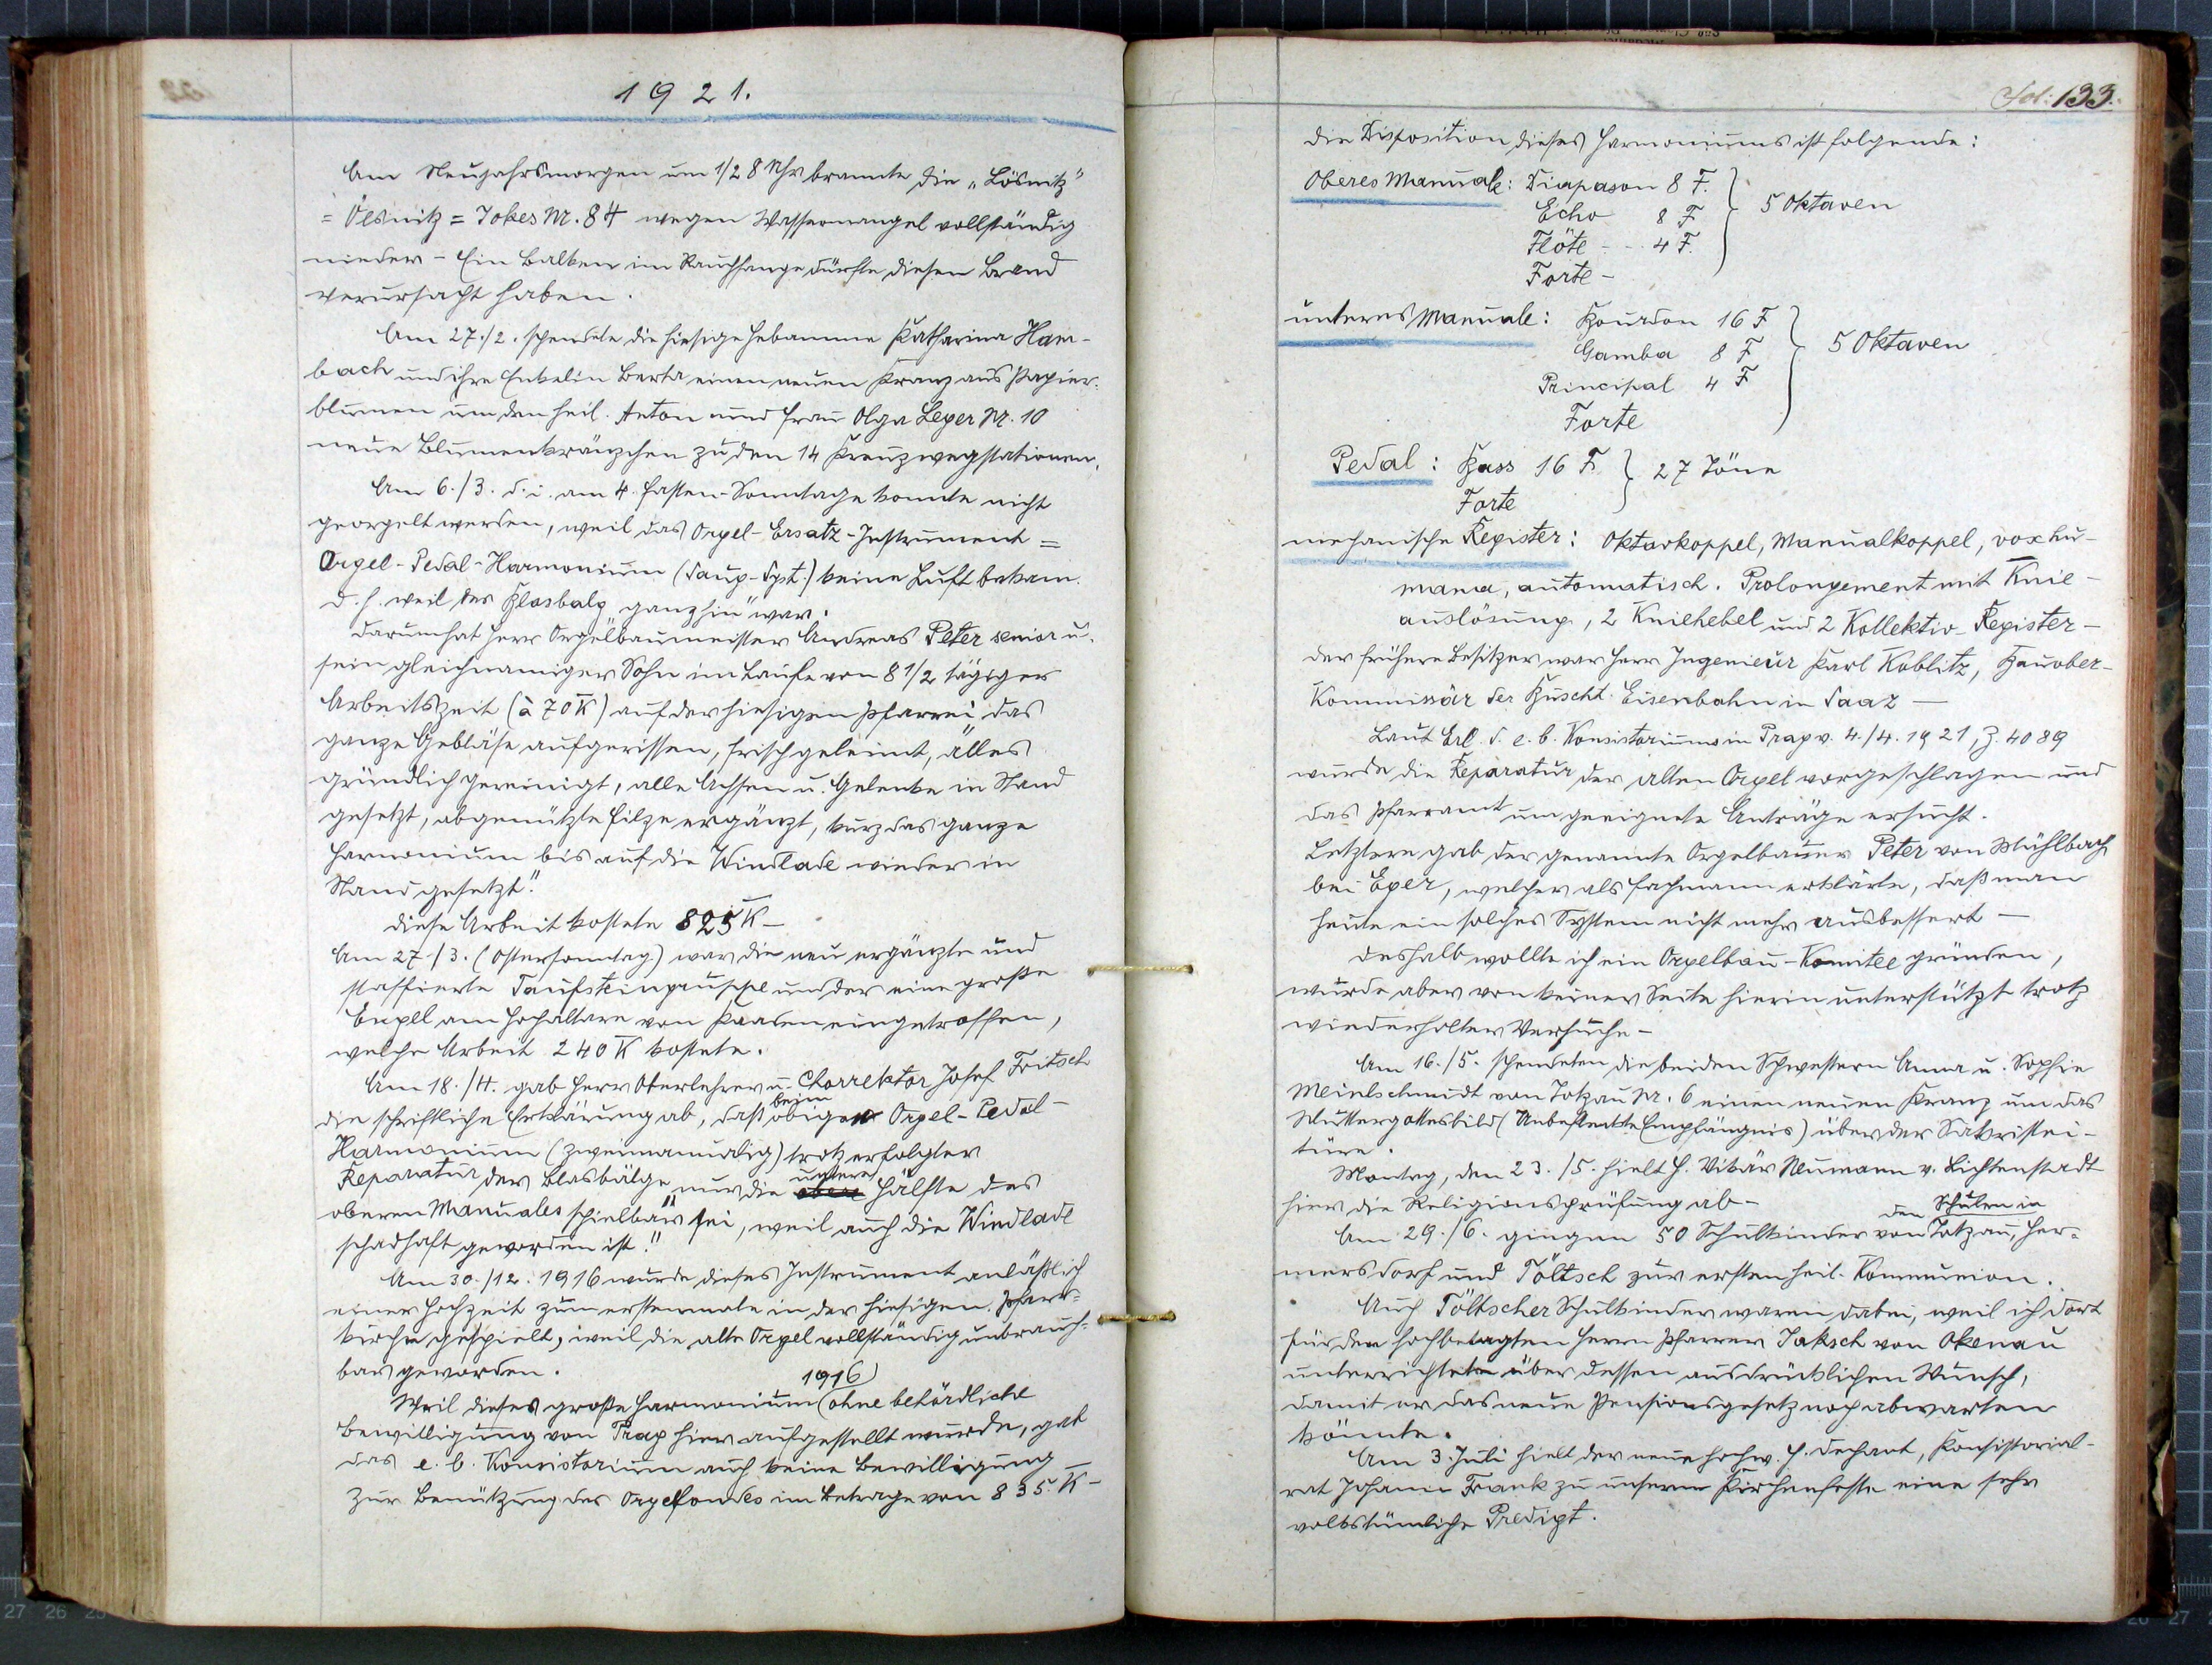 1921.
Am Neujahrsmorgen um 1/2 8 Uhr brannte die „Lösnitz"
= Ölsnitz = Jokes Nr. 84 wegen Wassermangel vollständig
nieder - Ein Balken im Rauchfange dürfte diesen Brand
verursacht haben.
Am 27./2. spendete die hiesige Hebamme Katharina Ham-
bach und ihre Enkelin Berta einen neuen Kranz aus Papier-
blumen um den heil. Anton und Frau Olga Leyer Nr. 10
neue Blumenkränzchen zu den 14 Kreuzwegstationen.
Am 6./3. d. i. am 4. Fasten-Sonntage konnte nicht
georgelt werden, weil das Orgel-Ersatz-Instrument =
Orgel-Pedal-Harmonium (Saug-Syst.) keine Luft bekam.
d. h. weil der Blasbalg ganz hin" war.
Darum hat Herr Orgelbaumeister Andreas Peter senior u.
sein gleichnamiger Sohn im Laufe von 8 1/2 tägiger
Arbeitszeit (à 70 K) auf der hiesigen Pfarrei das
ganze Gebläse aufgerissen, frisch geleimt, alles
gründlich gereinigt, alle Achsen u. Gelenke in Stand
gesetzt, abgenützte Filze ergänzt, kurz das ganze
Harmonium bis auf die Windlade wieder in
Stand gesetzt".
Diese Arbeit kostete 825 K -
Am 27./3. (Ostersonntag) war die neu ergänzte und
staffierte Taufsteingruppe und der eine große
Engel am Hochaltare von Kaaden eingetroffen,
welche Arbeit 240 K kostete.
Am 18./4. gab Herr Oberlehrer u. Chorrektor Josef Fritsch
die schriftliche Erklärung ab, daß beim obigen Orgel-Pedal-
Harmonium (zweimanualig) trotz erfolgter
Reparatur der Blasbälge „nur die untere Hälfte des
oberen Manuales spielbar sei, weil auch die Windlade
schadhaft geworden ist."
Am 30./12. 1916 wurde dieses Instrument anläßlich
einer Hochzeit zum erstenmale in der hiesigen Pfarr-
kirche gespielt, weil die alte Orgel vollständig unbrauch-
bar geworden.
Weil dieses große Harmonium 1916 ohne behördliche
Bewilligung von Prag hier aufgestellt wurde, gab
das e. b. Konsistorium auch keine Bewilligung
zur Benützung des Orgelfondes im Betrage von 835 K -
Fol: 133.
Die Disposition dieses Harmoniums ist folgende:
Oberes Manuale: Diapason 8 F.
Echo 8 F } 5 Oktaven
Flöte - - 4 F.
Forte -
unteres Manuale: Bourdon 16 F
Gamba 8 F } 5 Oktaven
Principal 4 F
Forte
Pedal: Bass 16 F. } 27 Töne
Forte
mechanische Register: Oktavkoppel, Manualkoppel, vox hu-
mana, automatisch. Prolongement mit Knie-
auslösung, 2 Kniehebel und 2 Kollektiv-Register -
Der frühere Besitzer war Herr Ingenieur Karl Koblitz, Bauober-
Kommissär der Buscht. Eisenbahn in Saaz -
Laut Erl. d. e. b. Konsistoriums in Prag v. 4./4. 1921, Z. 4089
wurde die Reparatur der alten Orgel vorgeschlagen und
das Pfarramt um geeignete Anträge ersucht.
Letztere gab der genannte Orgelbauer Peter von Mühlbach
bei Eger, welcher als Fachmann erklärte, daß man
heute ein solches System nicht mehr ausbessert -
Deshalb wollte ich ein Orgelbau-Komitee gründen,
wurde aber von keiner Seite hierin unterstützt trotz
wiederholter Versuche -
Am 16./5. spendeten die beiden Schwestern Anna u. Sophie
Meinlschmidt von Totzau Nr. 6 einen neuen Kranz um das
Muttergottesbild (Unbefleckte Empfängnis) über der Sakristei-
türe.
Montag, den 23./5. hielt H. Vikär Neumann v. Lichtenstadt
hier die Religionsprüfung ab -
Am 29./6. gingen 50 Schulkinder von den Schulen in Totzau, Her-
mersdorf und Töltsch zur ersten heil. Kommunion.
Auch Töltscher Schulkinder waren dabei, weil ich dort
für den hochbetagten Herrn Pfarrer Jaksch von Okenau
unterrichtete über dessen ausdrücklichen Wunsch,
damit er das neue Pensionsgesetz noch abwarten
könnte.
Am 3. Juli hielt der neue hochw. H. Dechant, Konsistorial-
rat Johann Frank zu unserem Kirchenfeste eine sehr
volkstümliche Predigt.